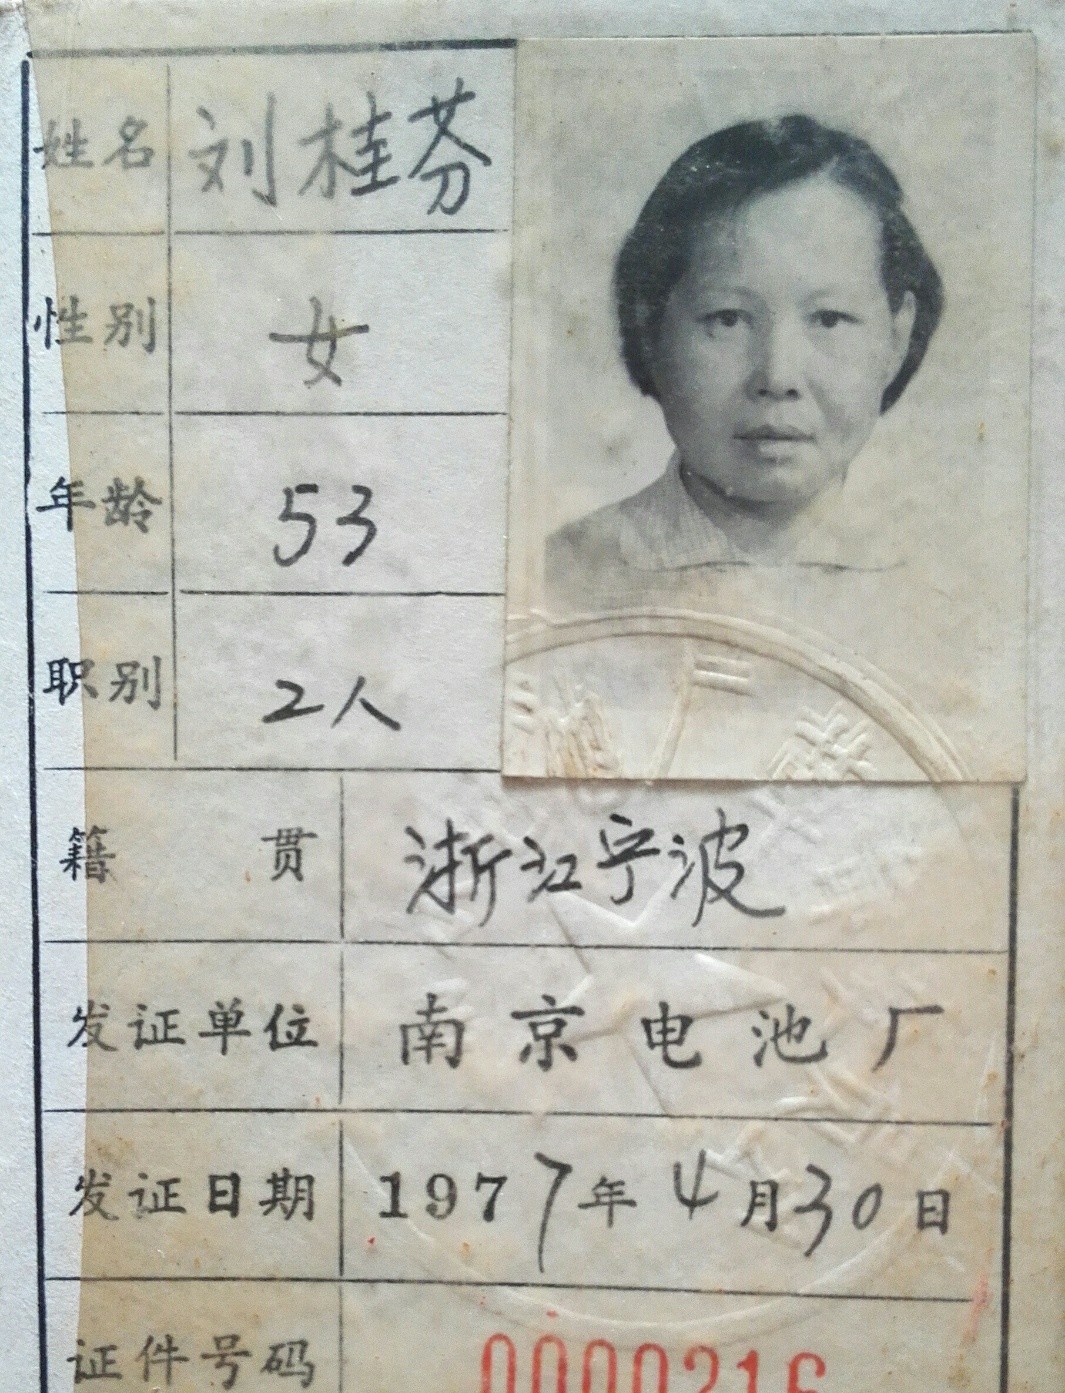 姓名 刘桂芬
性别 女
年龄 53
职别 工人
籍贯 浙江宁波
发证单位 南京电池厂
发证日期 1977年4月30日
证件号码 0000216